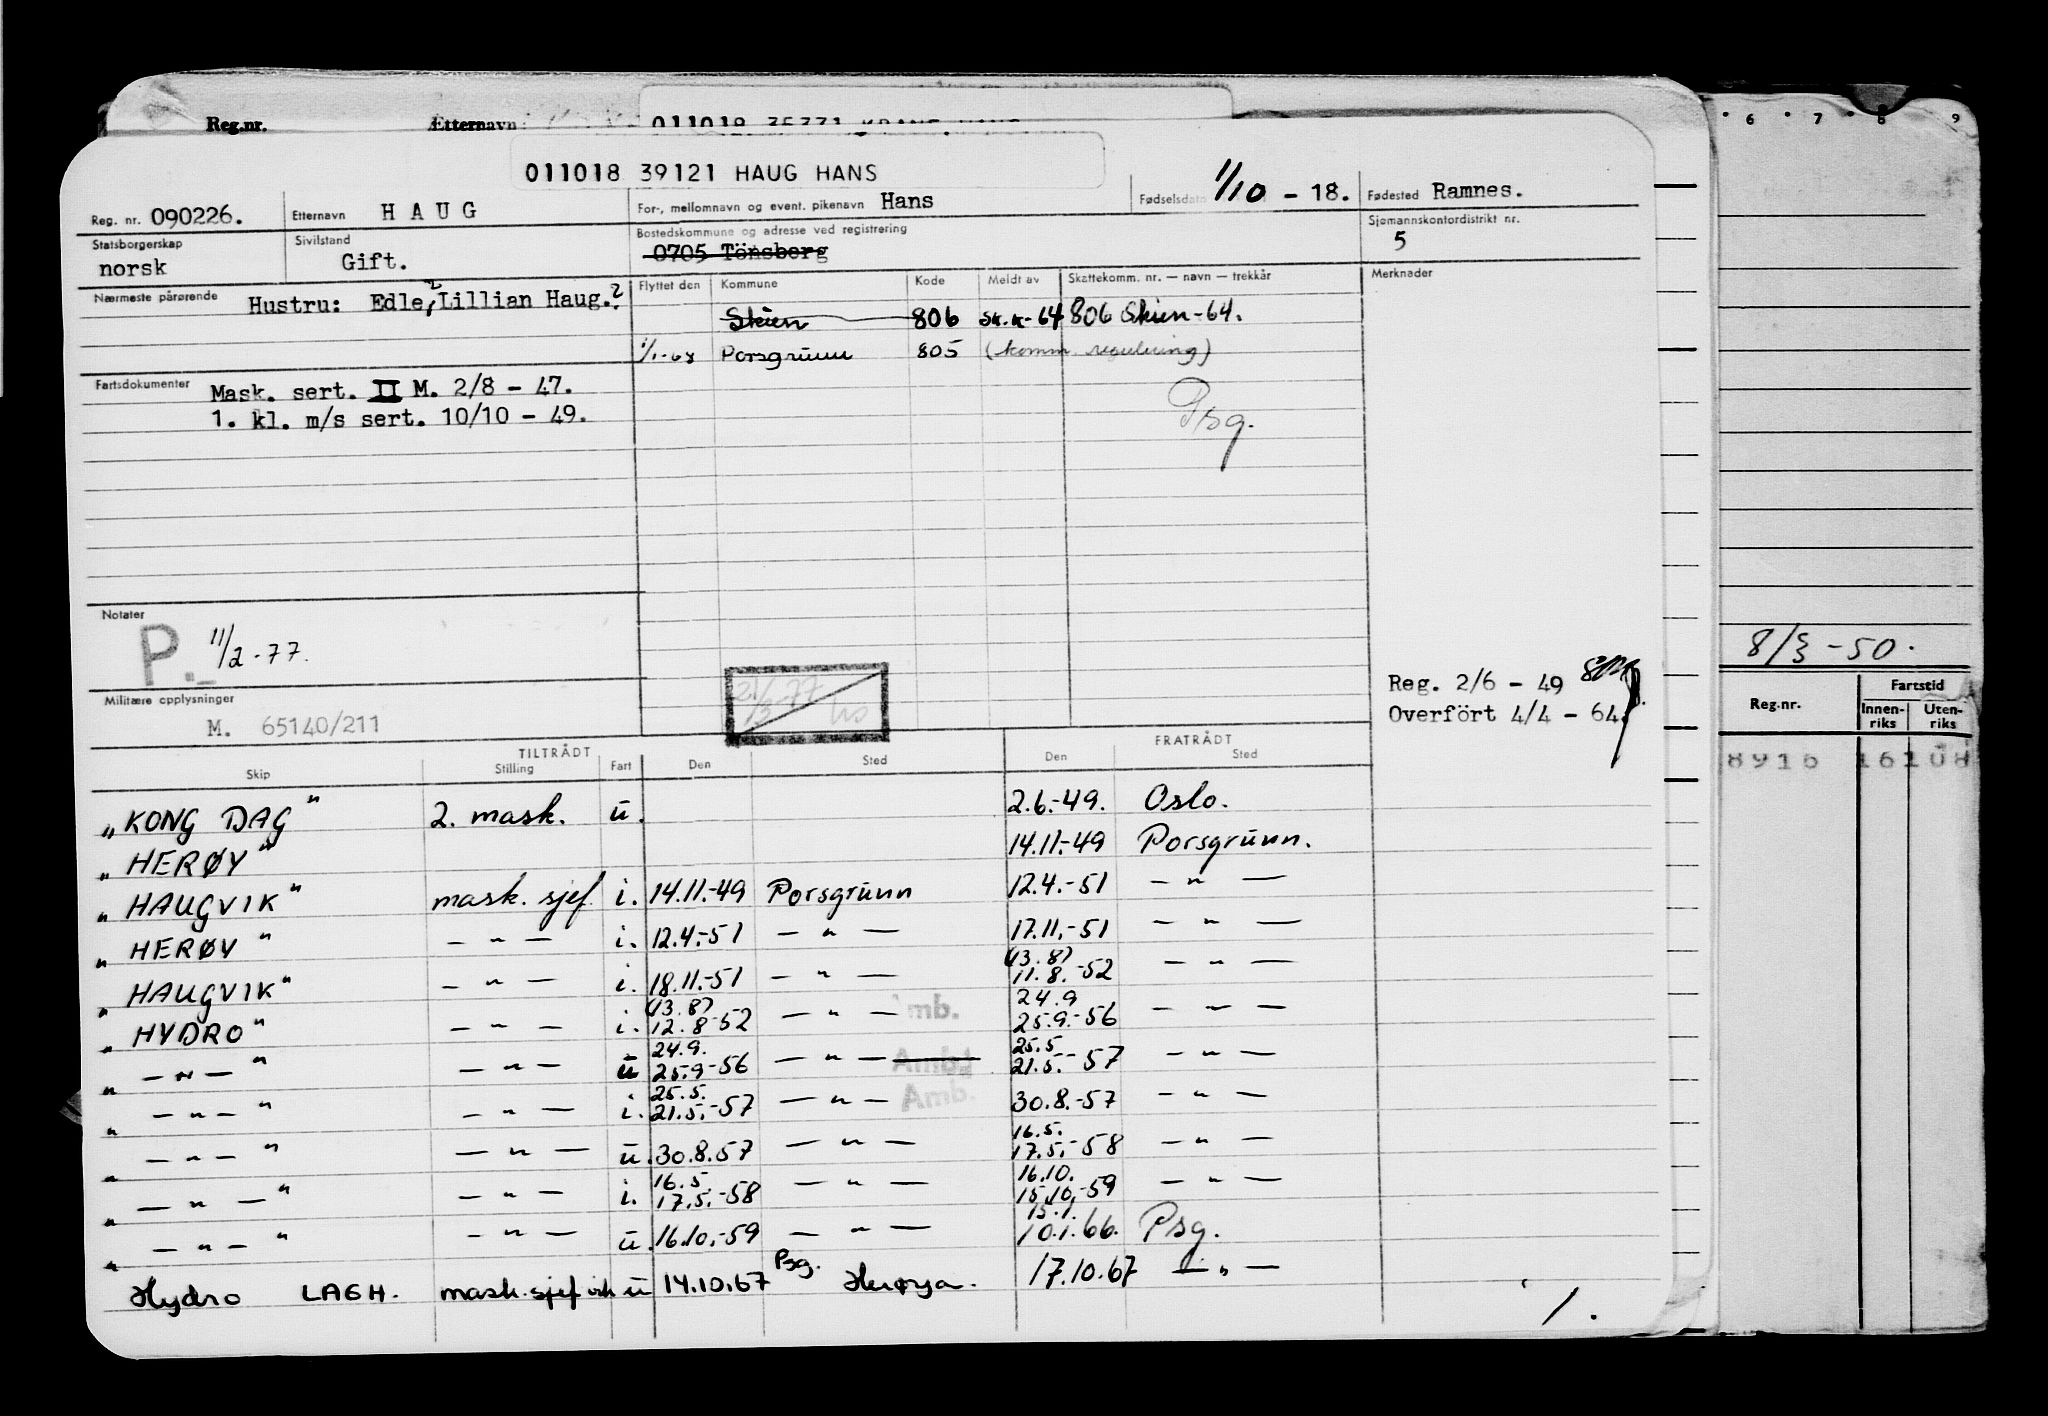 Reg.nr. Ætternavn 011018 35331 KRANE HANS
6 7 8 9
011018 39121 HAUG HANS
Reg. nr. 090226. Etternavn HAUG For-, mellomnavn og event. pikenavn Hans Fødselsdato 1/10 - 18. Fødested Ramnes.
Statsborgerskap norsk Sivilstand Gift. Bostedskommune og adresse ved registrering 0705 Tönsberg Sjømannskontordistrikt nr. 5
Nærmeste pårørende Hustru: Edle, Lillian Haug. 2 2
Flyttet den Kommune Kode Meldt av Skattekomm. nr. — navn — trekkår Merknader
Skien 806 Sk.k-64 806 Skien-64.
1/1-68 Porsgrunn 805 (komm. regulering)
Psg.
Fartsdokumenter Mask. sert. II M. 2/8 - 47.
1. kl. m/s sert. 10/10 - 49.
Notater
P. 11/2-77.
Militære opplysninger
M. 65140/211
Reg. 2/6 - 49
Overfört 4/4 - 64.
8/3 -50.
Reg.nr. Fartstid
Innen-riks Uten-riks
8916 16108
TILTRÅDT FRATRÅDT
Skip Stilling Fart Den Sted Den Sted
"KONG DAG" 2. mask. u. 2.6.-49. Oslo.
"HERØY" 14.11.-49 Porsgrunn.
"HAUGVIK" mask. sjef. i. 14.11.-49 Porsgrunn 12.4.-51 — " —
"HERØY" — " — i. 12.4.-51 — " — 17.11.-51 — " —
"HAUGVIK" — " — i. 18.11.-51 — " — (13.8) 11.8.-52 — " —
"HYDRO" — " — i. (13.8) 12.8-52 — " — mb. 24.9 25.9.-56 — " —
" — " — " — " — u 24.9. 25.9-56 — " — 25.5 21.5.-57 — " —
" — " — " — " — i. 25.5. 21.5.-57 — " — Amb. 30.8.-57 — " —
" — " — " — " — u. 30.8.57 — " — 16.5. 17.5.-58 — " —
" — " — " — " — i. 16.5. 17.5.-58 — " — 16.10. 15.10.-59 — " —
" — " — " — " — u. 16.10.-59 — " — 15.1. 10.1.66. Psg.
Hydro LAGH. mask. sjef u 14.10.67 Psg. Herøya. 17.10.67 — " —
1.